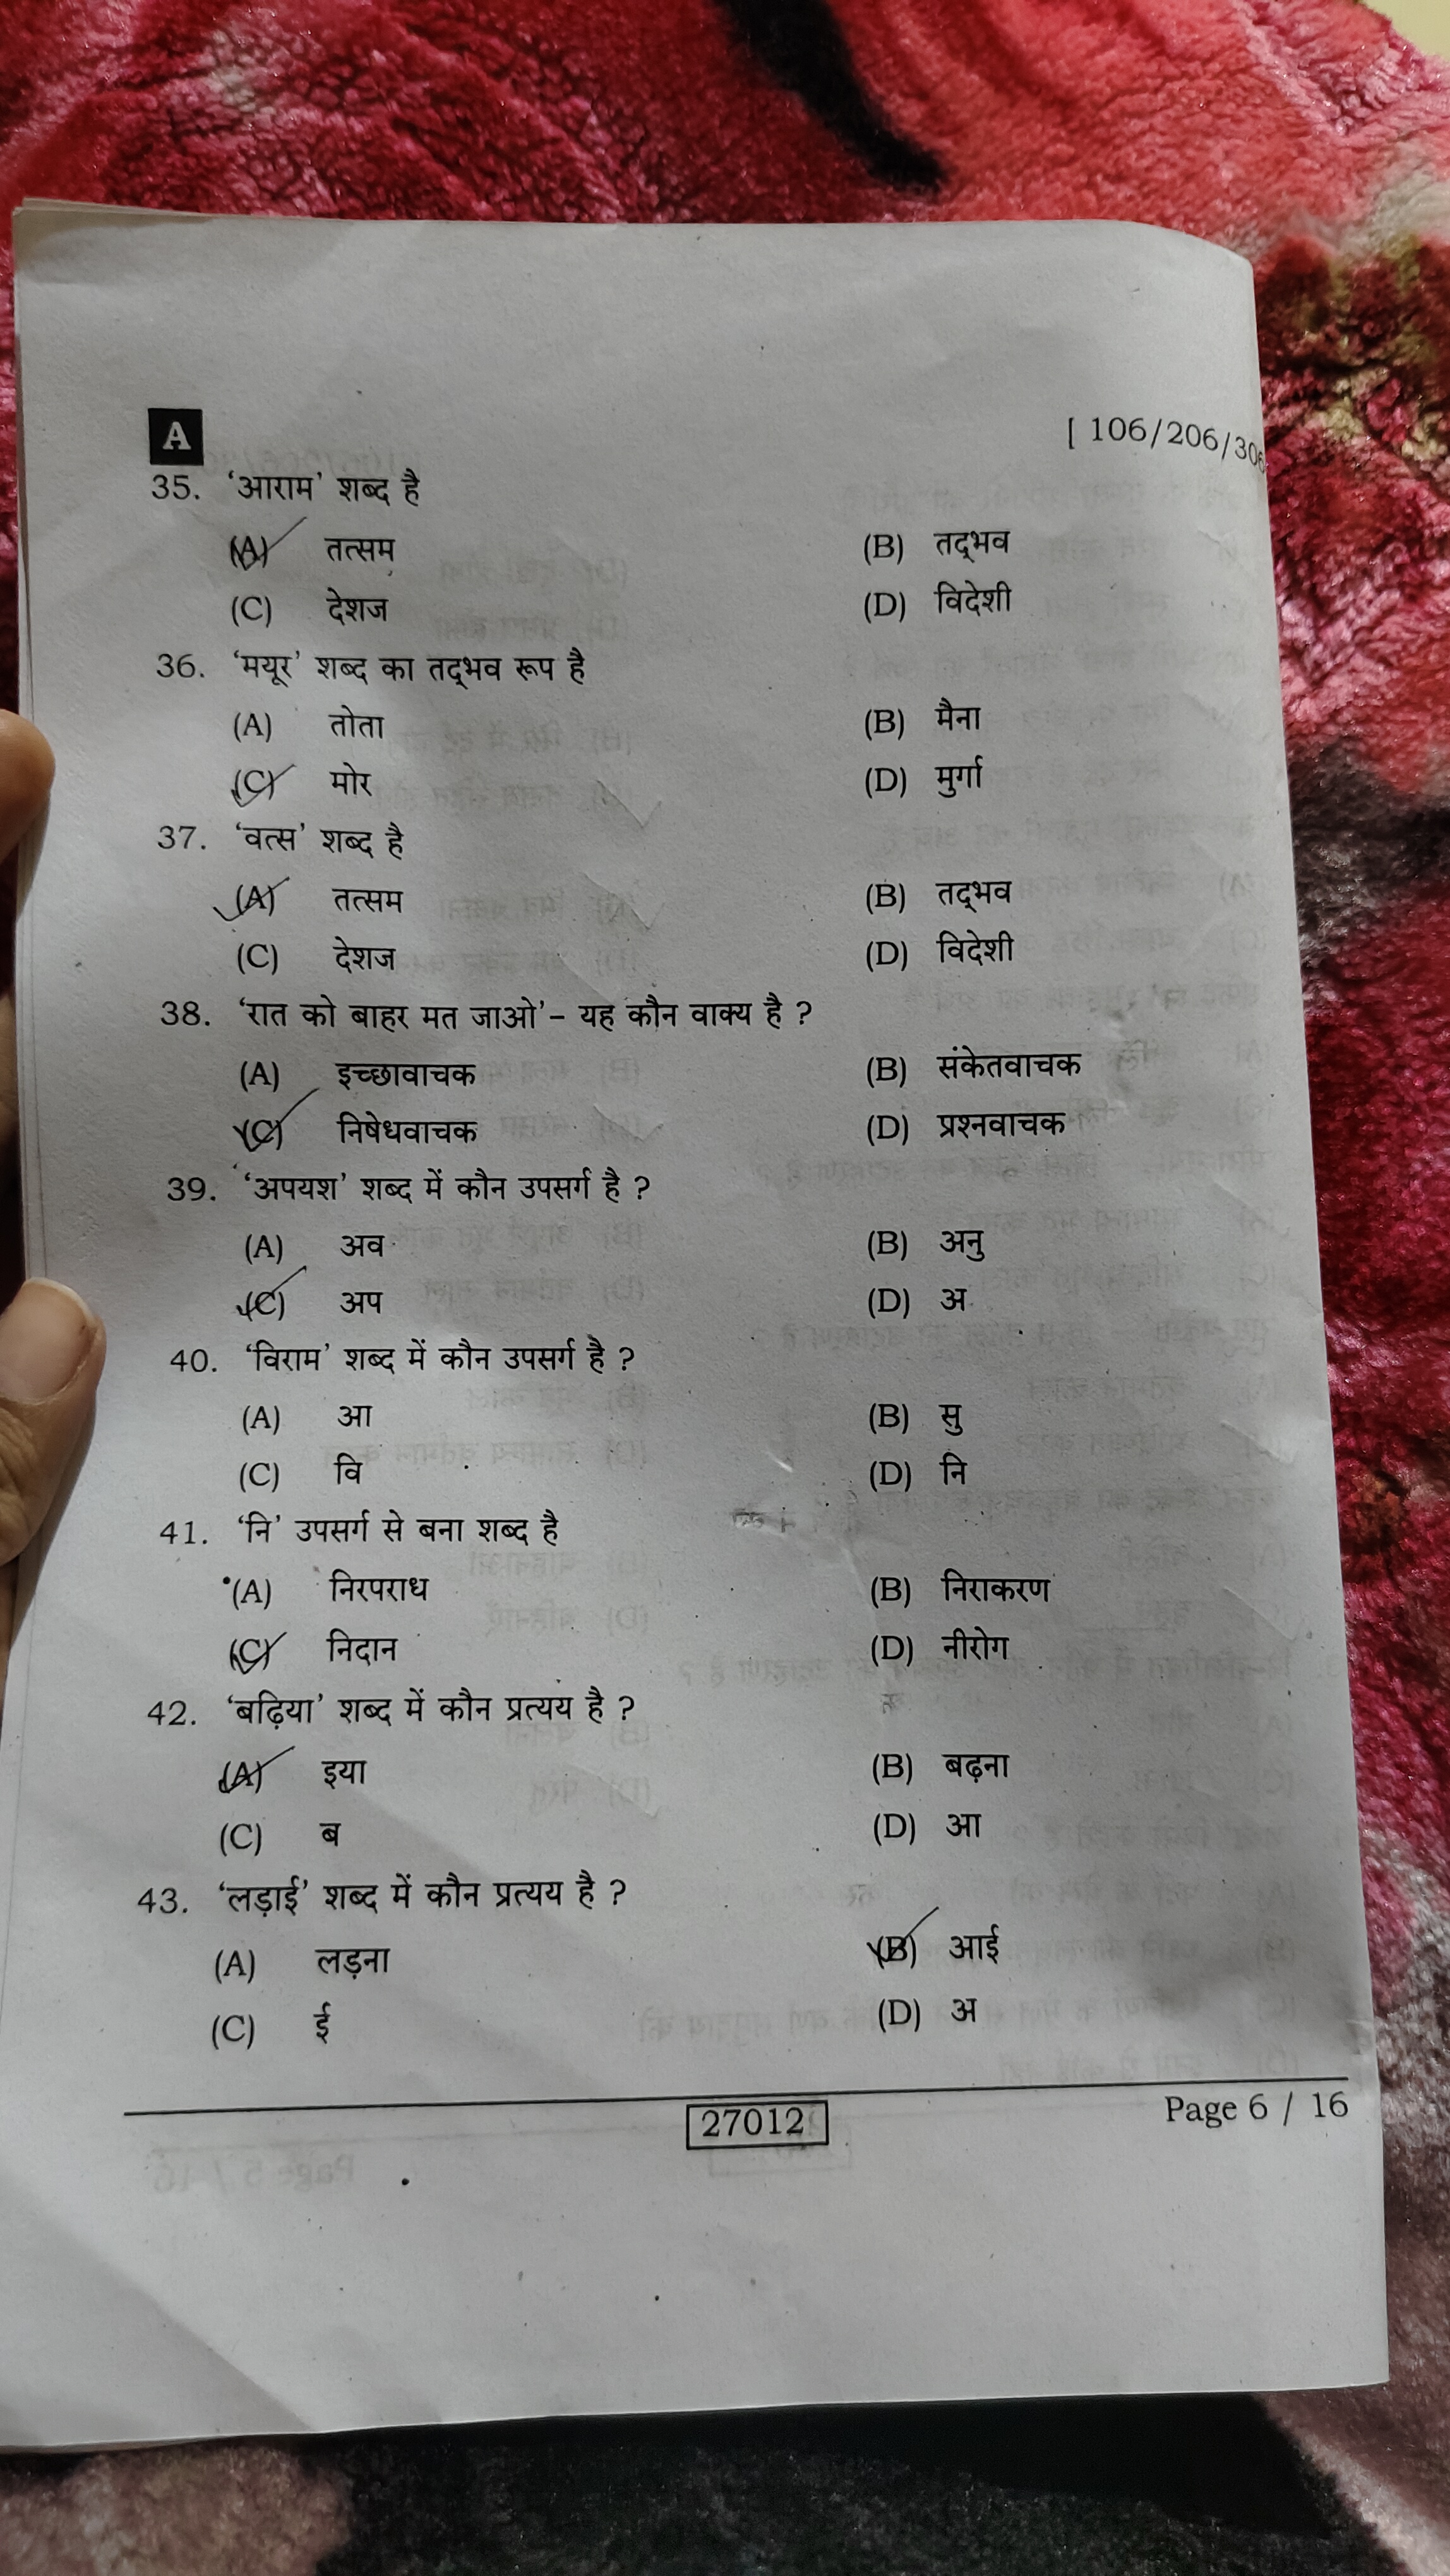 A
[ 106/206/306
35. ‘आराम’ शब्द है
(A) तत्सम (B) तद्‌भव
(C) देशज (D) विदेशी
36. ‘मयूर’ शब्द का तद्‌भव रूप है
(A) तोता (B) मैना
(C) मोर (D) मुर्गा
37. ‘वत्स’ शब्द है
(A) तत्सम (B) तद्‌भव
(C) देशज (D) विदेशी
38. ‘रात को बाहर मत जाओ’– यह कौन वाक्य है ?
(A) इच्छावाचक (B) संकेतवाचक
(C) निषेधवाचक (D) प्रश्नवाचक
39. ‘अपयश’ शब्द में कौन उपसर्ग है ?
(A) अव (B) अनु
(C) अप (D) अ
40. ‘विराम’ शब्द में कौन उपसर्ग है ?
(A) आ (B) सु
(C) वि (D) नि
41. ‘नि’ उपसर्ग से बना शब्द है
(A) निरपराध (B) निराकरण
(C) निदान (D) नीरोग
42. ‘बढ़िया’ शब्द में कौन प्रत्यय है ?
(A) इया (B) बढ़ना
(C) ब (D) आ
43. ‘लड़ाई’ शब्द में कौन प्रत्यय है ?
(A) लड़ना (B) आई
(C) ई (D) अ
27012
Page 6 / 16